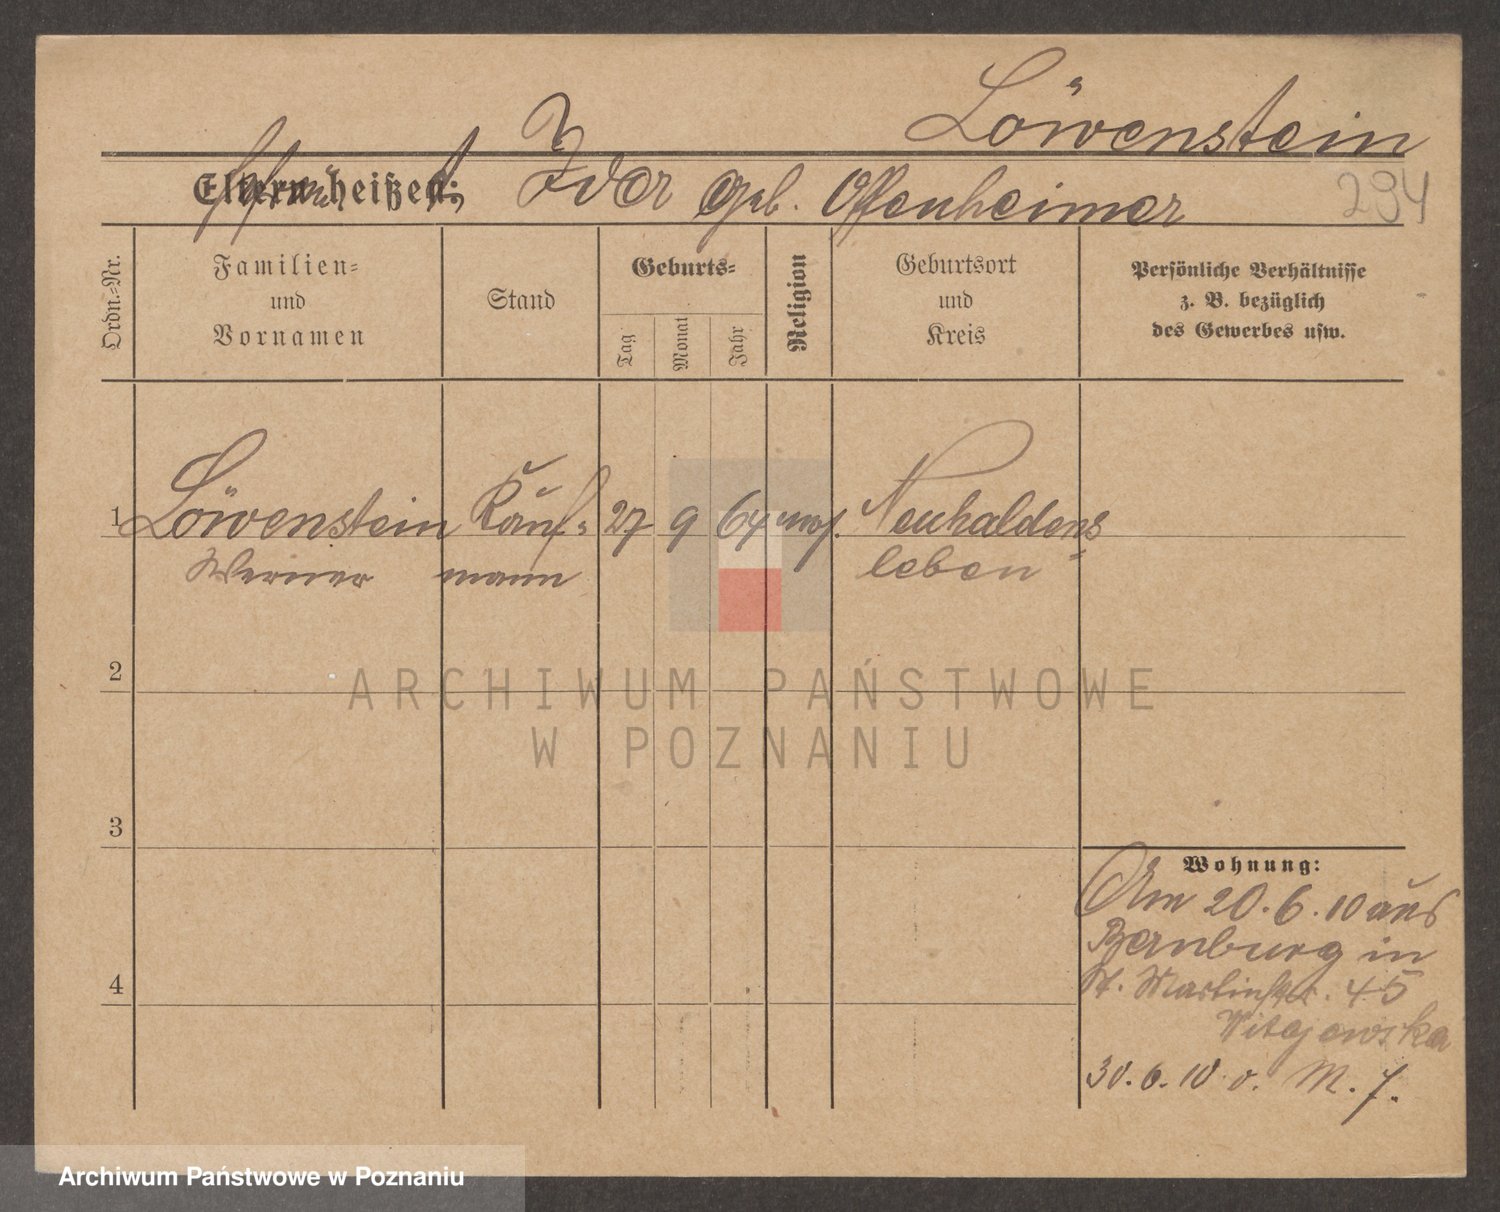 Löwenstein
Eltern heißen: Ider geb. Offenheimer
294
Ordn.-Nr.
Familien-
und
Vornamen
Stand
Geburts-
Tag
Monat
Jahr
Religion
Geburtsort
und
Kreis
Persönliche Verhältnisse
z. B. bezüglich
des Gewerbes usw.
1 Löwenstein Kauf- 27 9 64 mos. Neuhaldens-
Werner mann leben
2
3
4
Wohnung:
Am 20.6.10 aus
Bernburg in
St. Martinstr. 45
30.6.10 v. M. 7.
ARCHIWUM PAŃSTWOWE
W POZNANIU
Archiwum Państwowe w Poznaniu